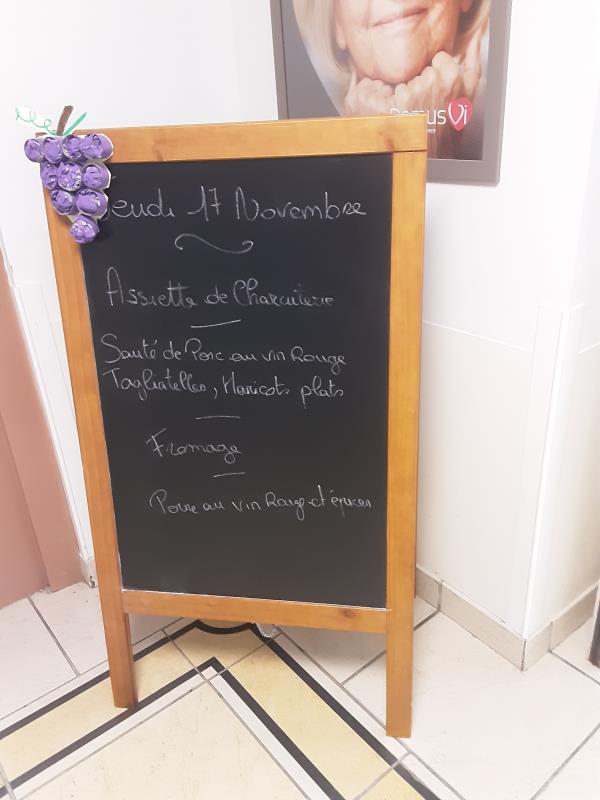 DomusVi
Jeudi 17 Novembre
Assiette de Charcuterie
Sauté de Porc au vin Rouge
Tagliatelles, Haricots plats
Fromage
Poire au vin Rouge et épices